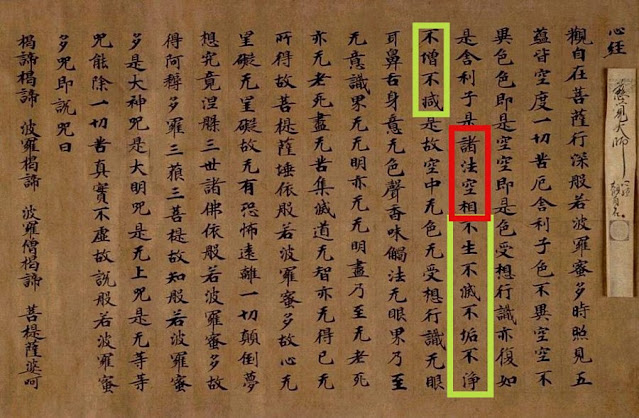 慈覺大師
心經
觀自在菩薩行深般若波羅蜜多時照見五
蘊皆空度一切苦厄舍利子色不異空空不
異色色即是空空即是色受想行識亦復如
是舍利子是諸法空相不生不滅不垢不淨
不增不減是故空中无色无受想行識无眼
耳鼻舌身意无色聲香味觸法无眼界乃至
无意識界无无明亦无无明盡乃至无老死
亦无老死盡无苦集滅道无智亦无得已无
所得故菩提薩埵依般若波羅蜜多故心无
罣礙无罣礙故无有恐怖遠離一切顛倒夢
想究竟涅槃三世諸佛依般若波羅蜜多故
得阿耨多羅三藐三菩提故知般若波羅蜜
多是大神咒是大明咒是无上咒是无等等
咒能除一切苦真實不虛故說般若波羅蜜
多咒即說咒曰
揭諦揭諦 波羅揭諦 波羅僧揭諦 菩提薩婆呵